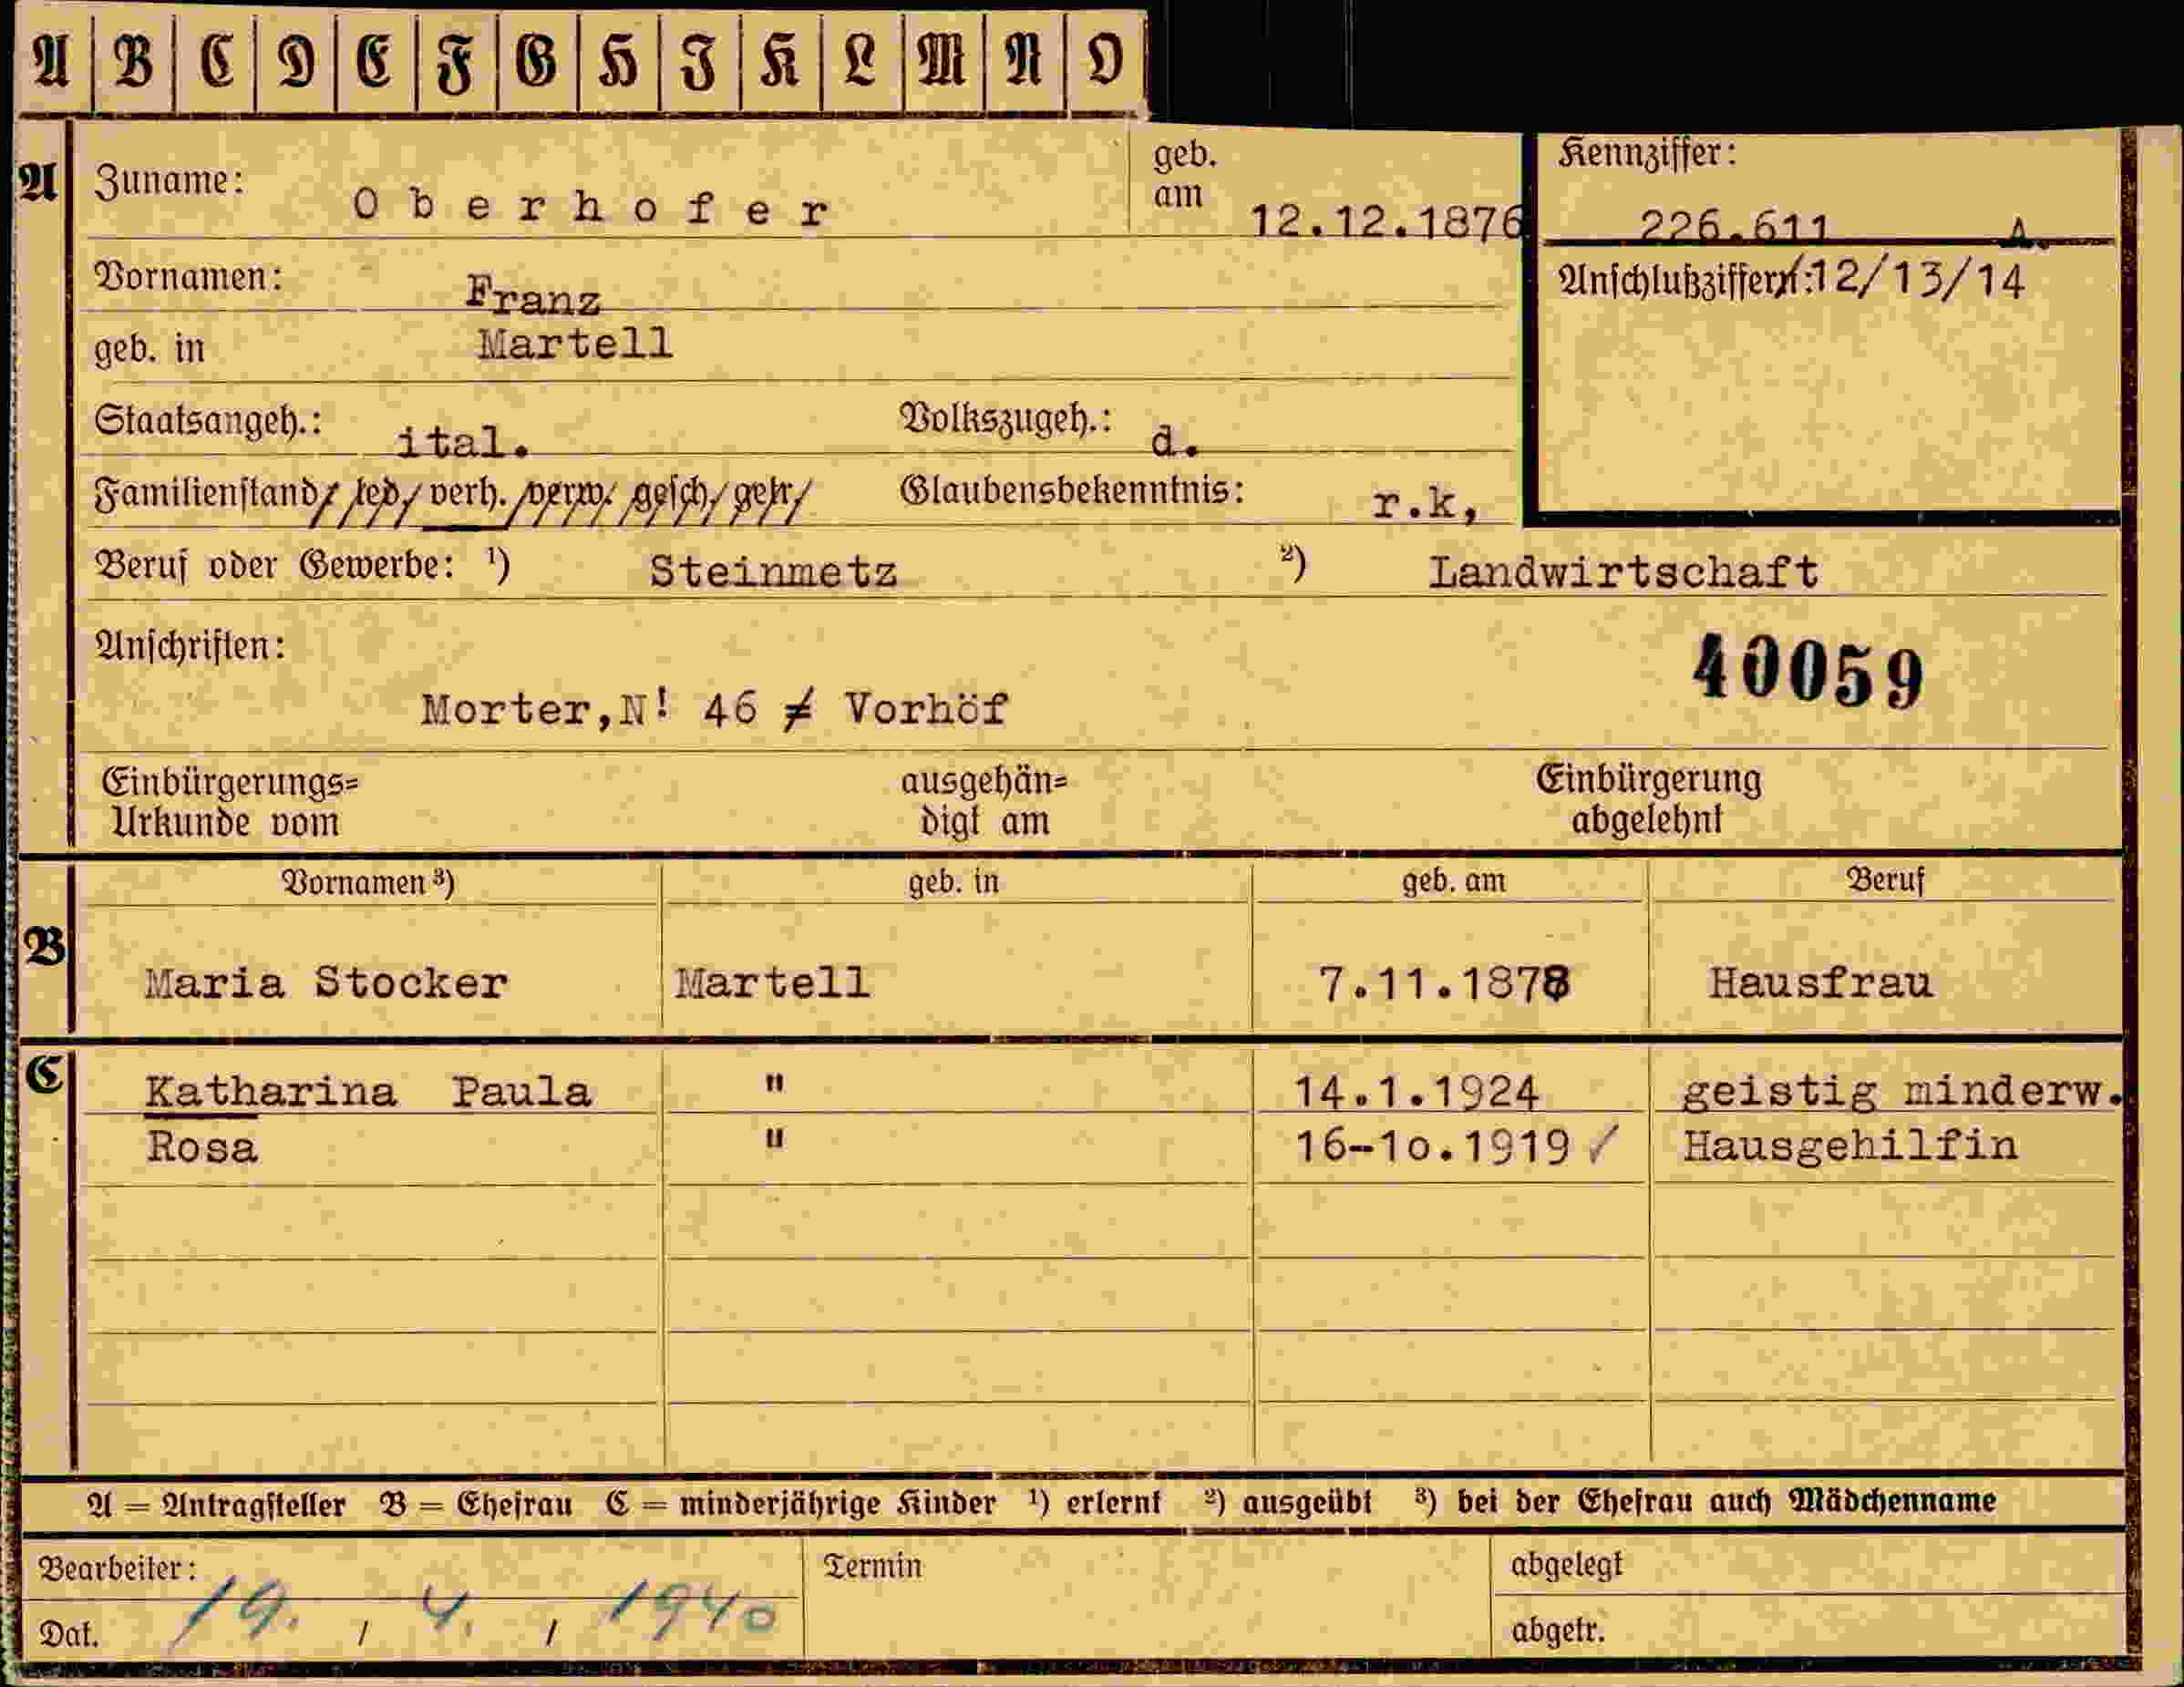 A B C D E F G H I K L M N O
A Zuname: Oberhofer geb. am 12.12.1876 Kennziffer: 226.611 A.
Vornamen: Franz Anschlußziffern: 12/13/14
geb. in Martell
Staatsangeh.: ital. Volkszugeh.: d.
Familienstand/ led/ verh. /verw/ gesch/ getr/ Glaubensbekenntnis: r.k,
Beruf oder Gewerbe: ¹) Steinmetz ²) Landwirtschaft
Anschriften: 40059
Morter,N! 46 ≠ Vorhöf
Einbürgerungs= ausgehän= Einbürgerung
Urkunde vom digt am abgelehnt
Vornamen ³) geb. in geb. am Beruf
B Maria Stocker Martell 7.11.1878 Hausfrau
C Katharina Paula " 14.1.1924 geistig minderw.
Rosa " 16-10.1919 / Hausgehilfin
A = Antragsteller B = Ehefrau C = minderjährige Kinder ¹) erlernt ²) ausgeübt ³) bei der Ehefrau auch Mädchenname
Bearbeiter: Termin abgelegt
Dat. 19. / 4. / 1940 abgetr.